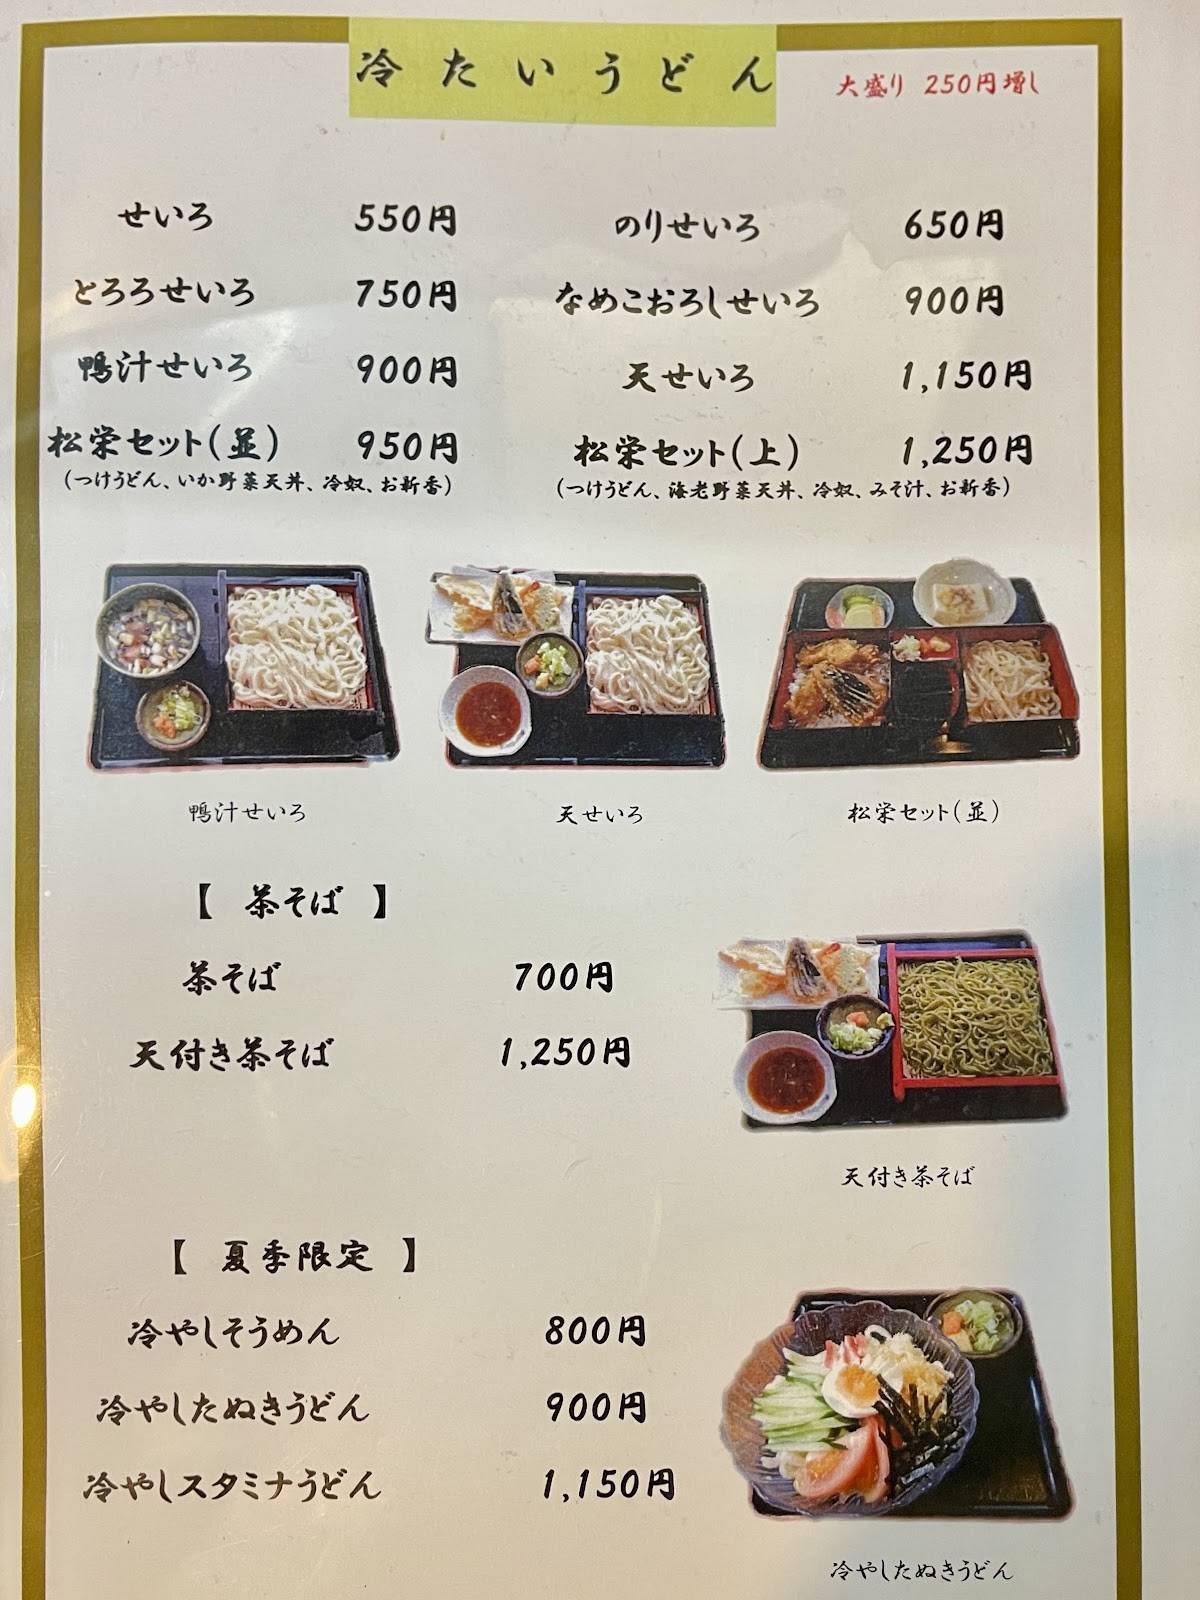 冷たいうどん
大盛り 250円増し
せいろ 550円 のりせいろ 650円
とろろせいろ 750円 なめこおろしせいろ 900円
鴨汁せいろ 900円 天せいろ 1,150円
松栄セット(並) 950円 松栄セット(上) 1,250円
(つけうどん、いか野菜天丼、冷奴、お新香) (つけうどん、海老野菜天丼、冷奴、みそ汁、お新香)
鴨汁せいろ 天せいろ 松栄セット(並)
【 茶そば 】
茶そば 700円
天付き茶そば 1,250円
天付き茶そば
【 夏季限定 】
冷やしそうめん 800円
冷やしたぬきうどん 900円
冷やしスタミナうどん 1,150円
冷やしたぬきうどん